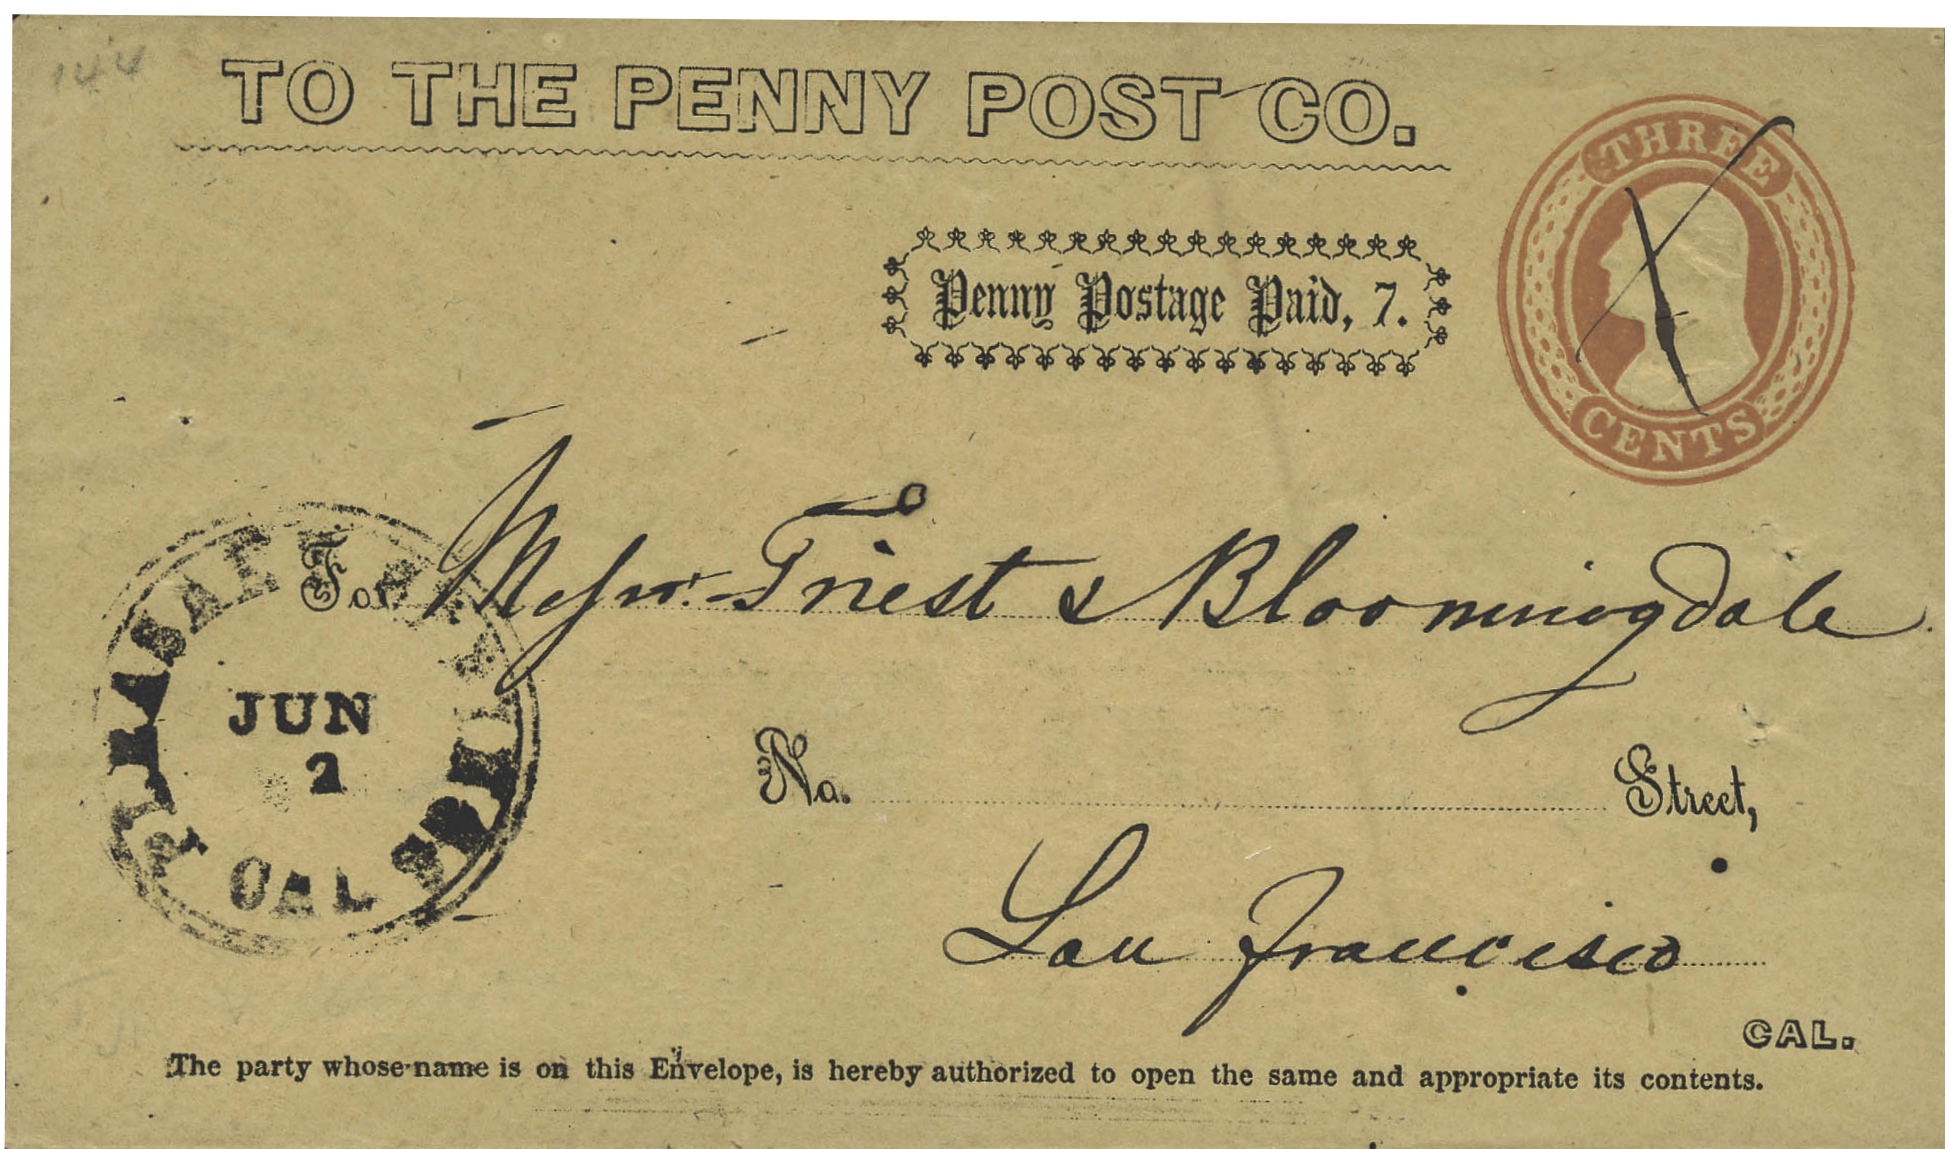 144
TO THE PENNY POST CO.
THREE
CENTS
Penny Postage Paid, 7.
For Messrs. Triest & Bloomingdale
JUN
2
CAL
No. Street,
San Francisco
CAL.
The party whose name is on this Envelope, is hereby authorized to open the same and appropriate its contents.